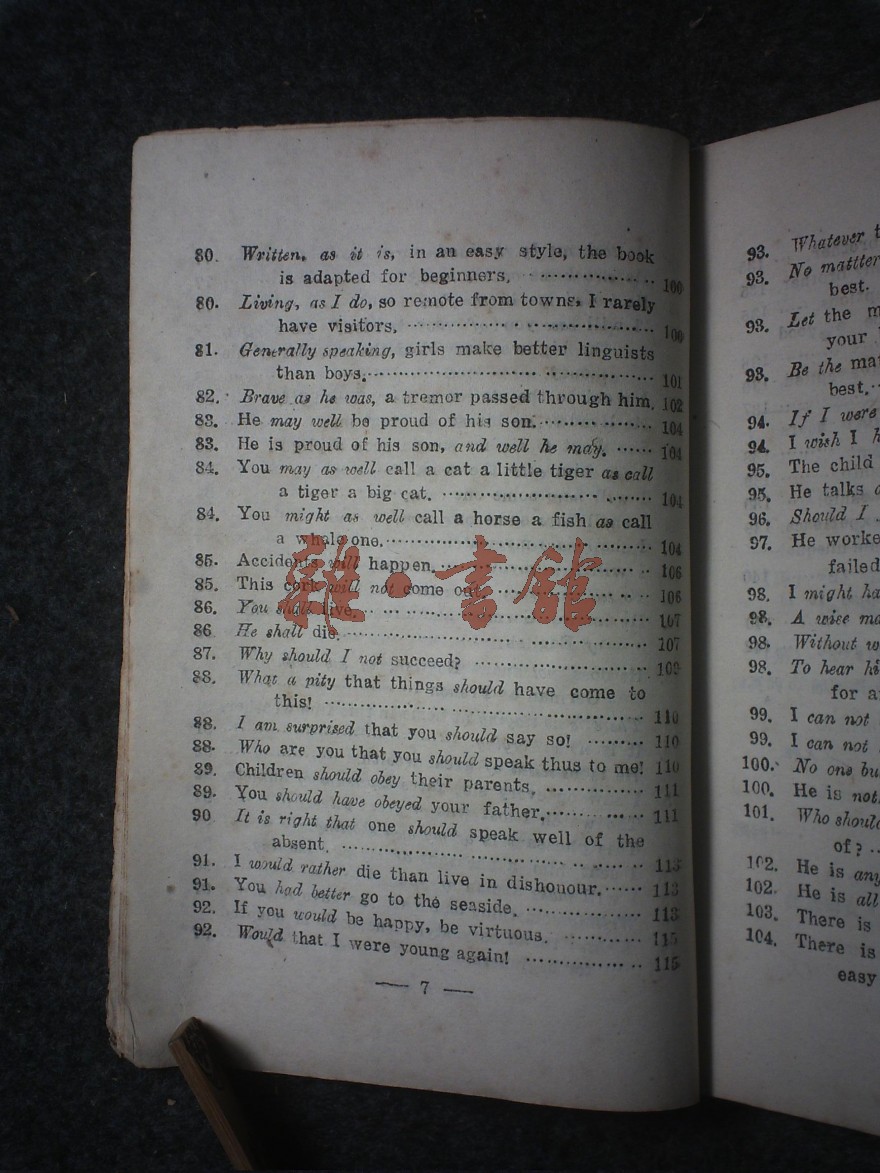 80. Written, as it is, in an easy style, the book
is adapted for beginners. 100
80. Living, as I do, so remote from towns, I rarely
have visitors. 100
81. Generally speaking, girls make better linguists
than boys. 101
82. Brave as he was, a tremor passed through him. 102
83. He may well be proud of his son. 104
83. He is proud of his son, and well he may. 104
84. You may as well call a cat a little tiger as call
a tiger a big cat. 104
84. You might as well call a horse a fish as call
a whale one. 104
85. Accidents will happen. 106
85. This cork will not come out. 106
86. You shall live. 107
86 He shall die. 107
87. Why should I not succeed? 109
88. What a pity that things should have come to
this! 110
88. I am surprised that you should say so! 110
88. Who are you that you should speak thus to me! 110
89. Children should obey their parents. 111
89. You should have obeyed your father. 111
90 It is right that one should speak well of the
absent. 113
91. I would rather die than live in dishonour. 113
91. You had better go to the seaside. 113
92. If you would be happy, be virtuous. 115
92. Would that I were young again! 115
— 7 —
93. Whatever t
93. No mattter
best.
93. Let the m
your
93. Be the mat
best.
94. If I were
94. I wish I h
95. The child
95. He talks
96. Should I
97. He worke
failed
98. I might ha
98. A wise ma
98. Without w
98. To hear hi
for a
99. I can not
99. I can not
100. No one bu
100. He is not
101. Who should
of?
102. He is any
102. He is all
103. There is
104. There is
easy
雜·書館